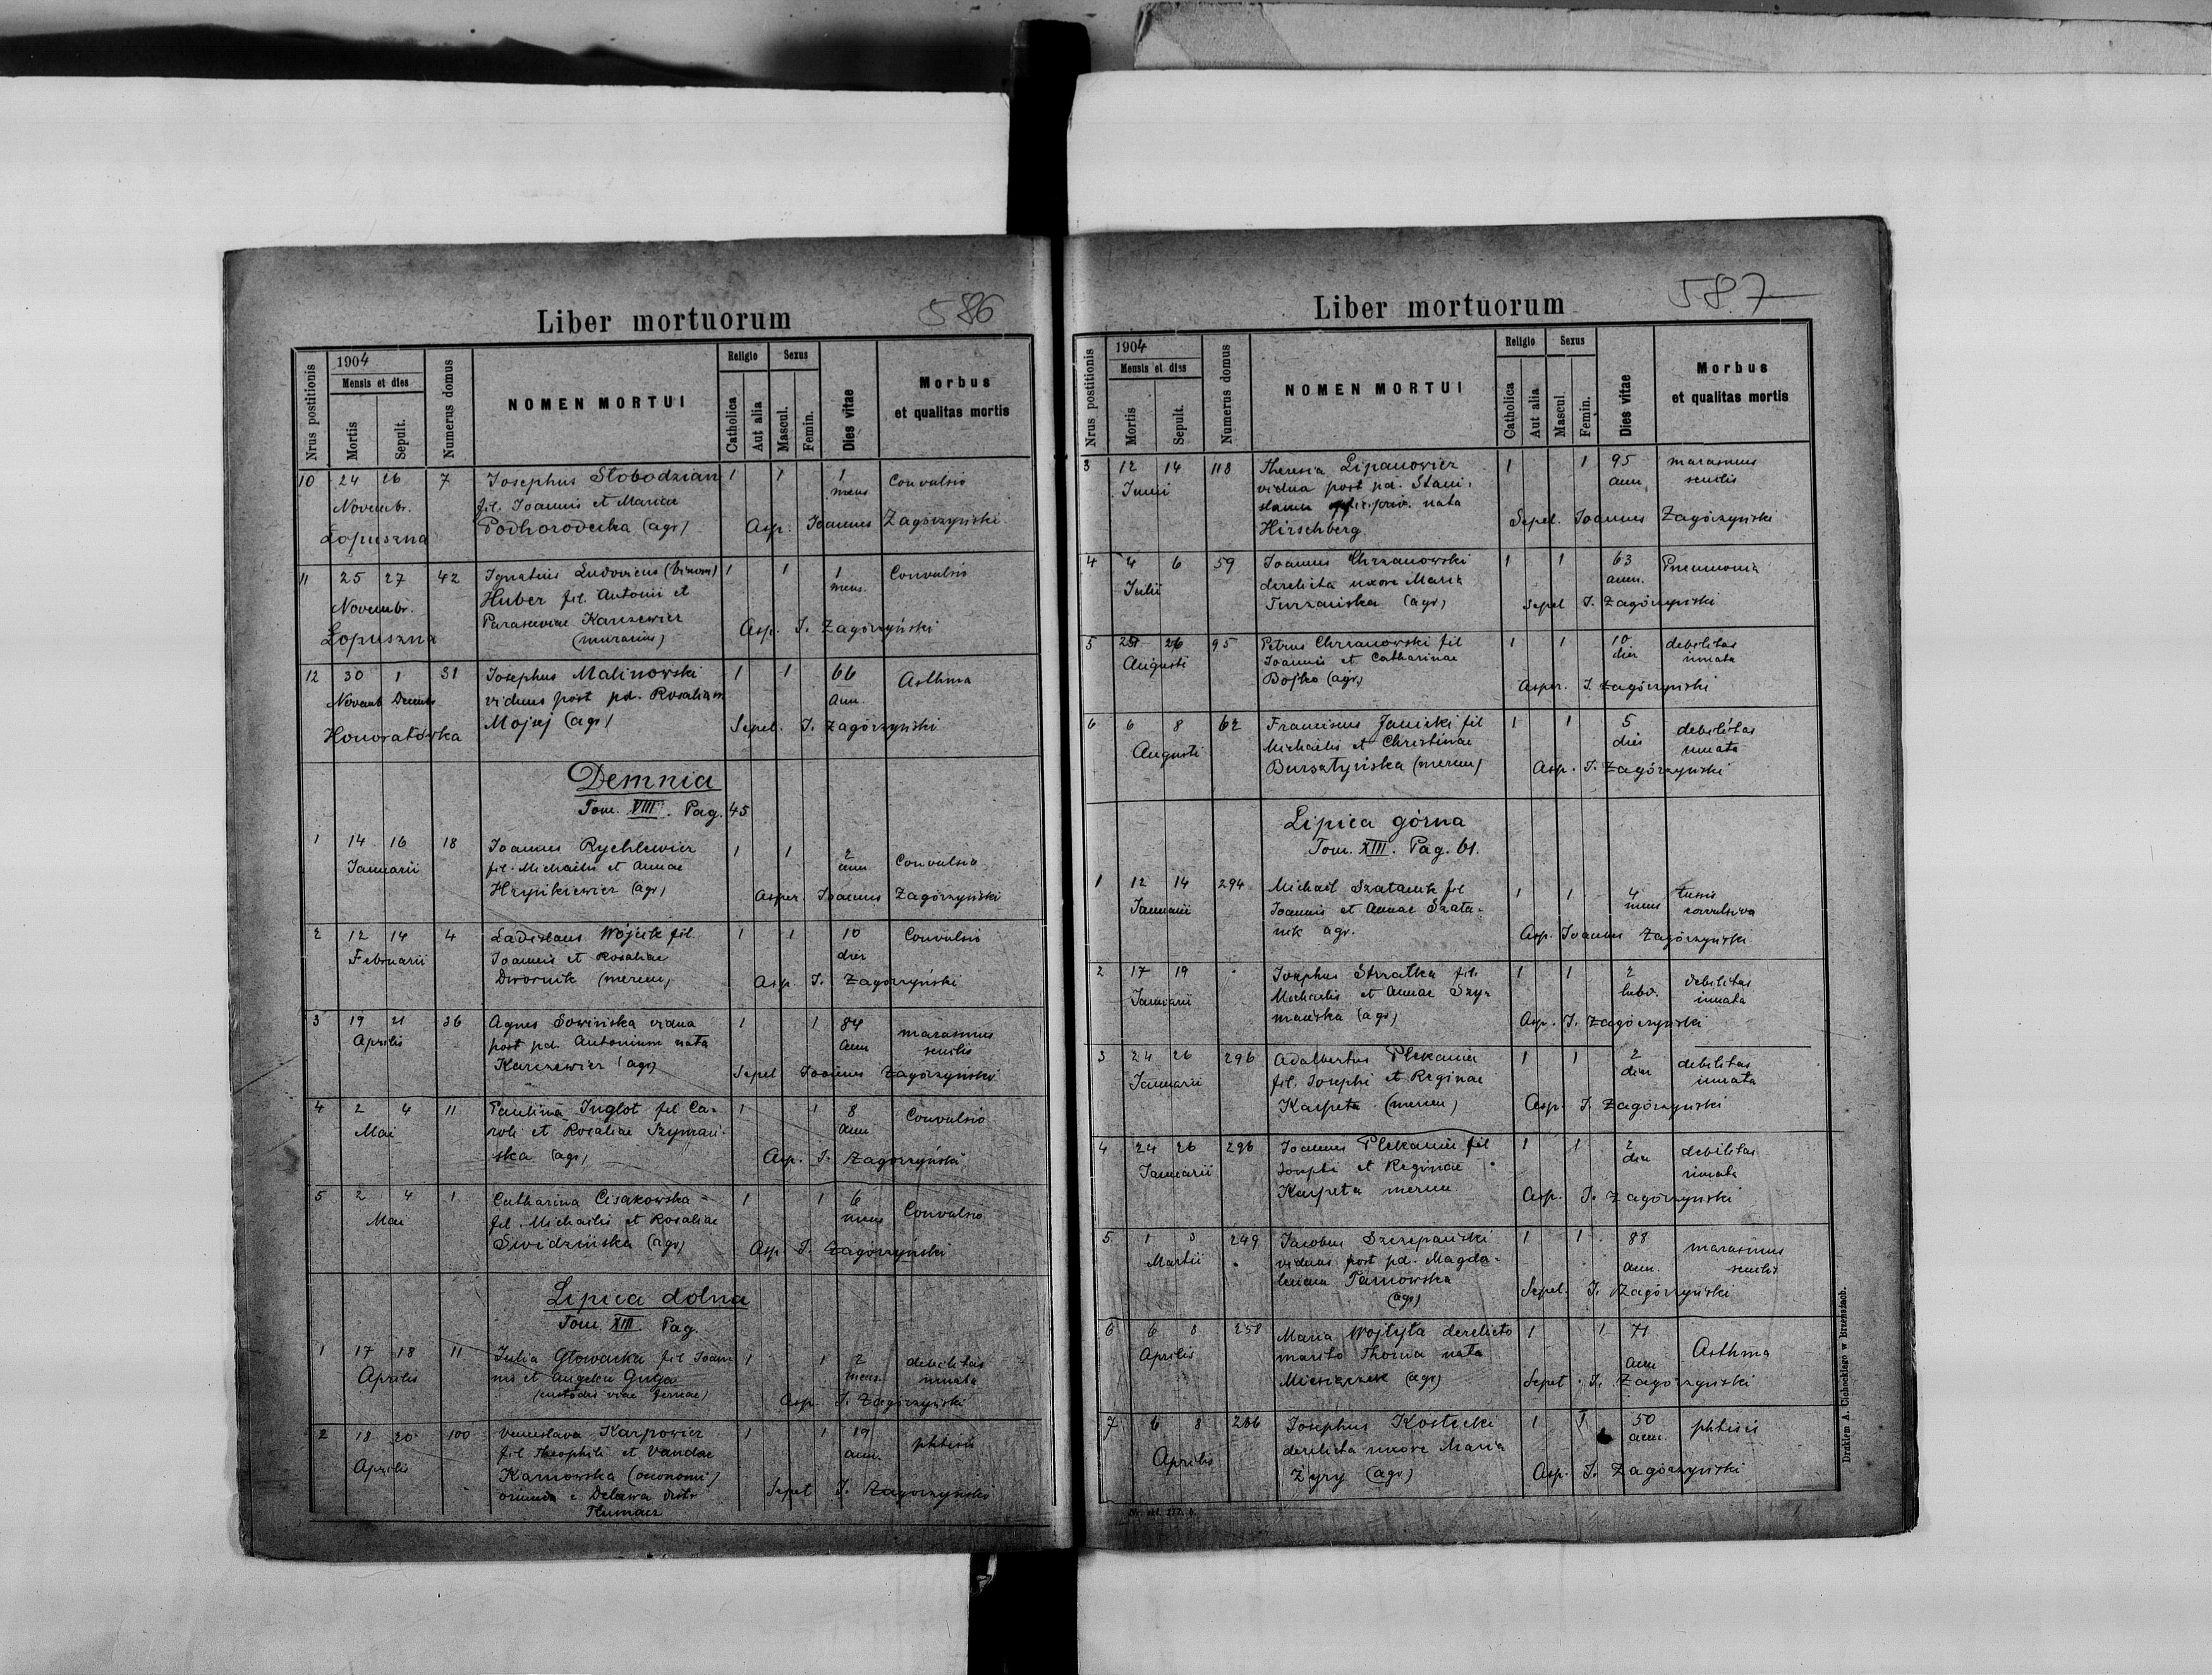 Liber mortuorum
586
Nrus postitionis
1904
Mensis et dies
Mortis
Sepult.
Numerus domus
NOMEN MORTUI
Religio
Catholica
Aut alia
Sexus
Mascul.
Femin.
Dies vitae
Morbus
et qualitas mortis
10 24 26 7 Josephus Słobodzian 1 1 1 Convulsio
Novembr. fil. Joannis et Mariae mens
Łopuszna Podhorodecka (agr) Asp. Joannes Zagórzyński
11 25 27 42 Ignatius Ludovicus (binom) 1 1 1 Convulsio
Novembr. Huber fil. Antonii et mens.
Łopuszna Parasceviae Karczewicz Asp. J. Zagórzyński
(murarius)
12 30 1 31 Josephus Malinowski 1 1 66 Asthma
Novemb Decembr viduus post pd. Rosaliam ann.
Honoratówka Mojsej (agr) Sepel. J. Zagórzyński
Demnia
Tom. VIII. Pag. 45
1 14 16 18 Joannes Rychlewicz 1 1 2 Convulsio
Januarii fil. Michaelis et Annae ann
Hrynkiewicz (agr) Asper Joannes Zagórzyński
2 12 14 4 Ladislaus Wójcik fil. 1 1 10 Convulsio
Februarii Joannis et Rosaliae dies
Dwornik (mercen) Asp. J. Zagórzyński
3 19 21 36 Agnes Sowińska vidua 1 1 84 marasmus
Aprilis post pd. Antonium nata ann senilis
Karczewicz (agr) Sepel Joannes Zagórzyński
4 2 4 11 Paulina Inglot fil Ca- 1 1 8 Convulsio
Mai roli et Rosaliae Szymań- ann
ska (agr) Asp. J. Zagórzyński
5 2 4 1 Catharina Cisakowska 1 1 6 Convulsio
Mai fil. Michaelis et Rosaliae mens
Swidzińska (agr) Asp. J. Zagórzyński
Lipica dolna
Tom. XIII. Pag.
1 17 18 11 Julia Głowacka fil Joan 1 1 2 debilitas
Aprilis nis et Angelae Gulja mens. innata
(custodis viae ferreae) Asp. J. Zagórzyński
2 18 20 100 Venceslava Karpowicz 1 1 19 phtisis
Aprilis fil Theophili et Vandae ann
Karnowska (oeconomi) Sepel J. Zagórzyński
oriunda e Delawa distr
Tłumacz
Liber mortuorum
587
Nrus postitionis
1904
Mensis et dies
Mortis
Sepult.
Numerus domus
NOMEN MORTUI
Religio
Catholica
Aut alia
Sexus
Mascul.
Femin.
Dies vitae
Morbus
et qualitas mortis
3 12 14 118 Theresia Lipanowicz 1 1 95 marasmus
Junii vidua post pd. Stani- ann senilis
slaum priv. nata Sepel. Joannes Zagórzyński
Hirschberg
4 4 6 59 Joannes Chrzanowski 1 1 63 Pneumonia
Julii derelicta uxore Maria ann.
Turzańska (agr) Sepel J. Zagórzyński
5 26 95 Petrus Chrzanowski fil 1 1 10 debilitas
Augusti Joannis et Catharinae dies innata
Bojko (agr) Asper. J. Zagórzyński
6 6 8 62 Franciscus Janicki fil 1 1 5 debilitas
Augusti Michaelis et Christinae dies innata
Bursztyńska (mercen) Asp. J. Zagórzyński
Lipica górna
Tom. XIII. Pag. 61.
1 12 14 294 Michaël Szatanik fil 1 1 4 tussis
Januarii Joannis et Annae Szata- mens convulsiva
nik agr. Asp. Joannes Zagórzyński
2 17 19 Josephus Strzałka fil. 1 1 2 debilitas
Januarii Michaelis et Annae Szy- hebd. innata
mańska (agr) Asp. J. Zagórzyński
3 24 26 296 Adalbertus Plekaniec 1 1 2 debilitas
Januarii fil. Josephi et Reginae dies innata
Karpeta (mercen) Asp J. Zagórzyński
4 24 26 296 Joannes Plekaniec fil 1 1 2 debilitas
Januarii Josephi et Reginae dies innata
Karpeta mercen Asp. J. Zagórzyński
5 1 3 249 Jacobus Szczepański 1 1 88 marasmus
Martii viduus post pd. Magda- ann. senilis
lenam Tarnowska Sepel. J. Zagórzyński
(agr)
6 6 8 258 Maria Wojtyła derelicto 1 1 71 Asthma
Aprilis marito Thoma nata ann
Miesiączek (agr) Sepel. J. Zagórzyński
7 6 8 286 Josephus Kostecki 1 1 50 phtisis
Aprilis derelicta uxore Maria ann.
Żyry (agr) Asp. J. Zagórzyński
Drukiem A. Cichockiego w Brzeżanach.